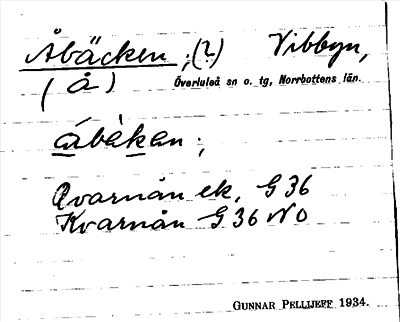 Åbäcken ; (?) Vibbyn,
(Å) Överluleå sn o. tg, Norrbottens län.
ábèken ;
Qvarnån ek. G 36
Kvarnån G 36 NO
GUNNAR PELLIJEFF 1934.